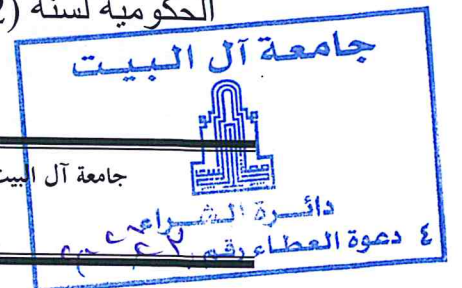 الحكومية لسنة (2
جامعة آل البيت
جامعة آل البيت
دائرة الشراء
٤ دعوة العطاء رقم